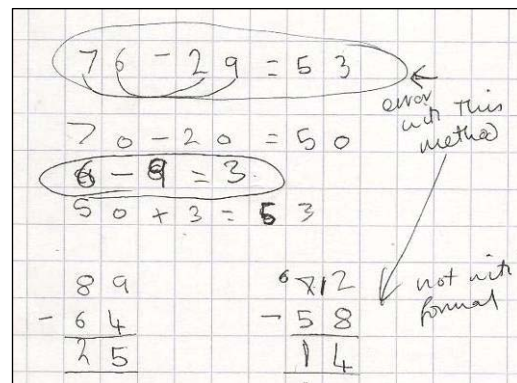 76 - 29 = 53
error with this method
70 - 20 = 50
6 - 9 = 3
50 + 3 = 53
89
- 64
25
6 7 12
- 58
14
not with formal